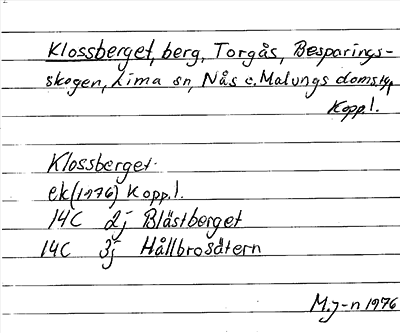 Klossberget, berg, Torgås, Besparings-
skogen, Lima sn, Nås o. Malungs doms.
Kopp.l.
Klossberget.
ek(1976) Kopp.l.
14C 2j Blästberget
14C 3j Hållbrosätern
M.J-n 1976